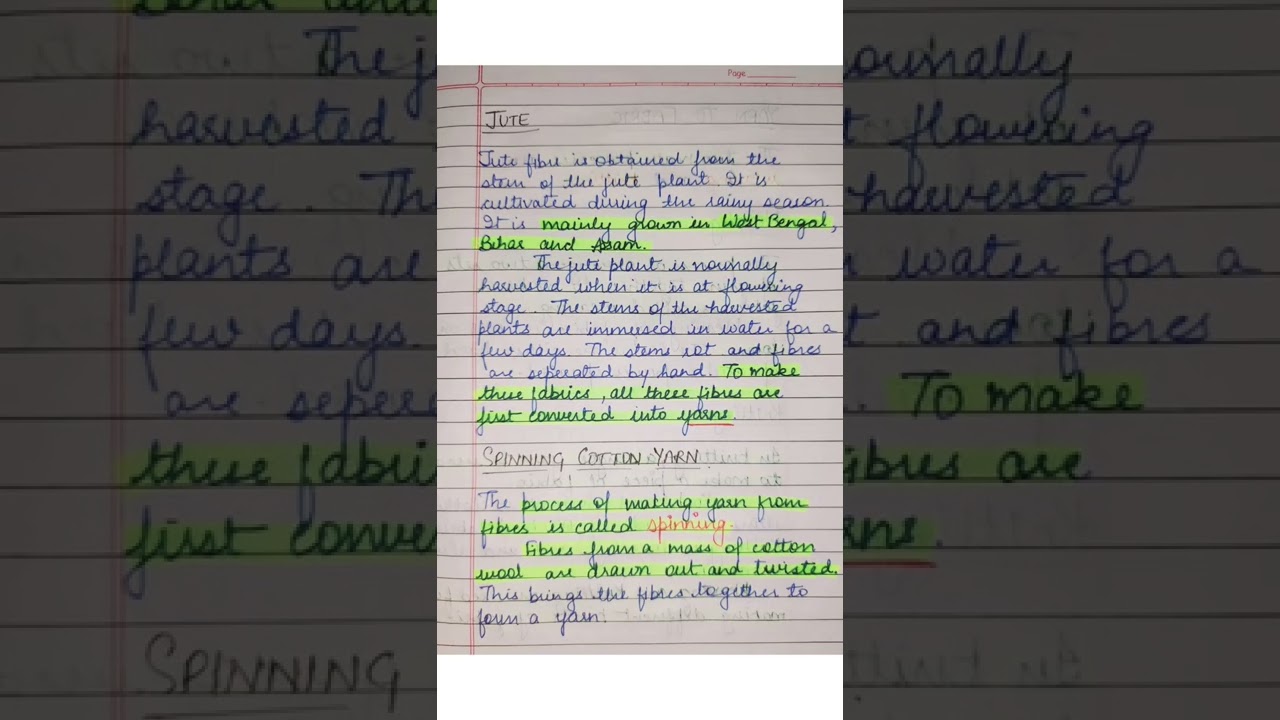 Page
JUTE
Jute fibre is obtained from the
stem of the jute plant. It is
cultivated during the rainy season.
It is mainly grown in West Bengal,
Bihar and Assam.
The jute plant is normally
harvested when it is at flowering
stage. The stems of the harvested
plants are immersed in water for a
few days. The stems rot and fibres
are seperated by hand. To make
these fabrics, all these fibres are
first converted into yarns.
SPINNING COTTON YARN
The process of making yarn from
fibres is called spinning.
Fibres from a mass of cotton
wool are drawn out and twisted.
This brings the fibres together to
form a yarn.